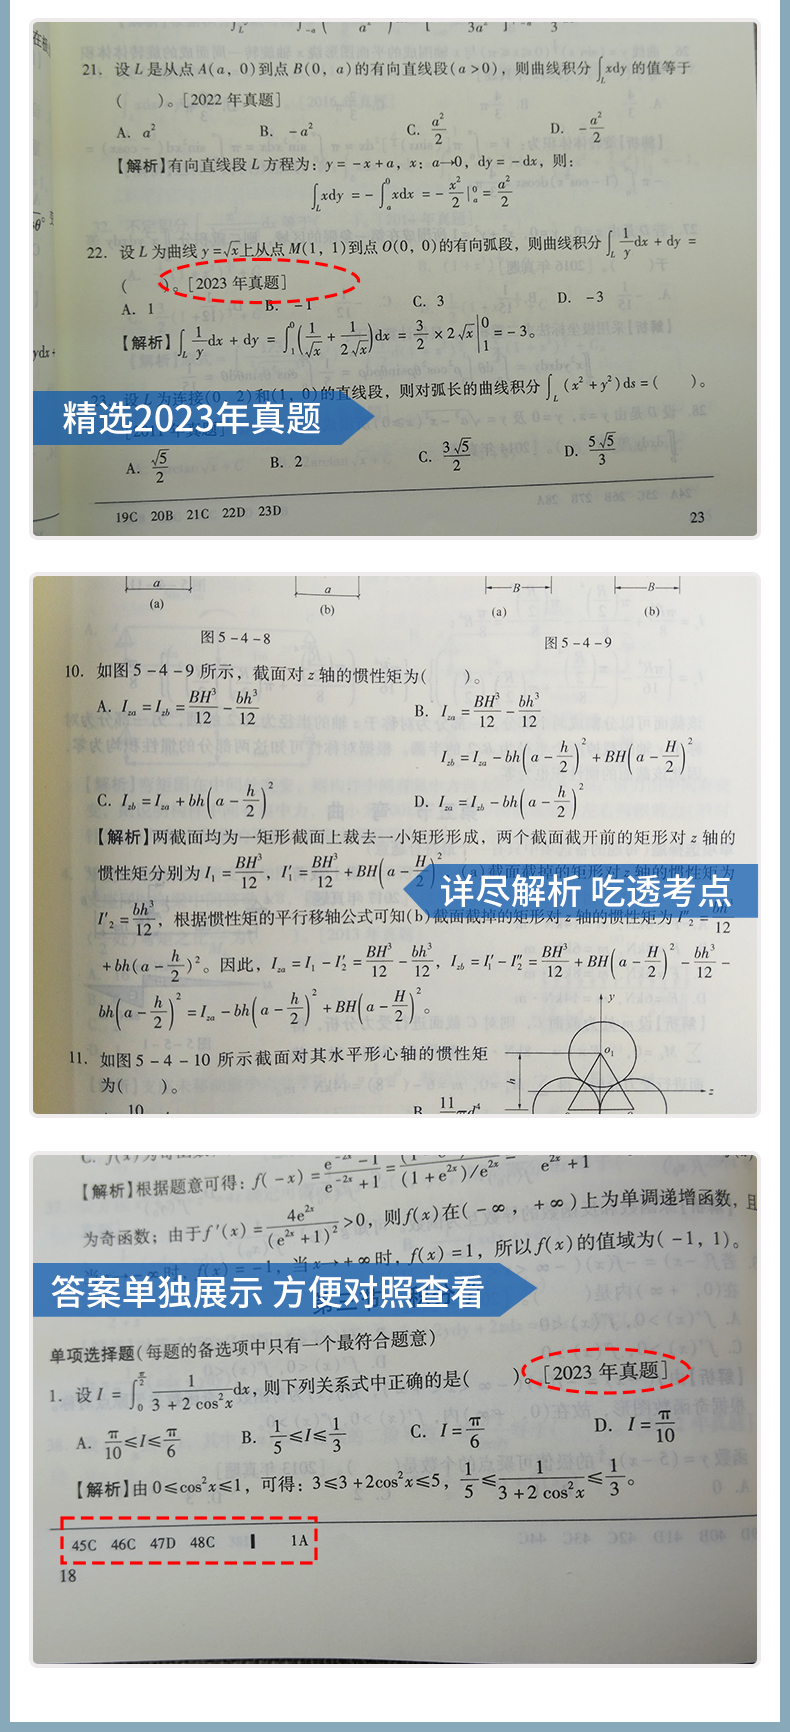 21. 设 L 是从点 A(a, 0)到点 B(0, a)的有向直线段(a>0), 则曲线积分∫_L xdy 的值等于
(  )。[2022 年真题]
A. a²  B. -a²  C. a²/2  D. -a²/2
【解析】有向直线段 L 方程为: y=-x+a, x: a→0, dy=-dx, 则:
∫_L xdy = -∫_a^0 xdx = -x²/2|_a^0 = a²/2
22. 设 L 为曲线 y=√x上从点 M(1, 1)到点 O(0, 0)的有向弧段, 则曲线积分∫_L 1/y dx + dy =
(  )。[2023 年真题]
A. 1  B. -1  C. 3  D. -3
【解析】∫_L 1/y dx + dy = ∫_1^0 (1/√x + 1/(2√x))dx = 3/2 × 2√x|_1^0 = -3。
23. 设 L 为连接(0, 2)和(1, 0)的直线段, 则对弧长的曲线积分∫_L (x²+y²)ds=(  )。
精选2023年真题
A. √5/2  B. 2  C. 3√5/2  D. 5√5/3
19C 20B 21C 22D 23D
23
a a B B
(a) (b) (a) (b)
图 5-4-8 图 5-4-9
10. 如图 5-4-9 所示, 截面对 z 轴的惯性矩为(  )。
A. I_za = I_zb = BH³/12 - bh³/12  B. I_za = BH³/12 - bh³/12
I_zb = I_za - bh(a - h/2)² + BH(a - H/2)²
C. I_zb = I_za + bh(a - h/2)²  D. I_za = I_zb - bh(a - h/2)²
【解析】两截面均为一矩形截面上裁去一小矩形形成, 两个截面截开前的矩形对 z 轴的
惯性矩分别为 I₁ = BH³/12, I′₁ = BH³/12 + BH(a - H/2)²
详尽解析 吃透考点
I′₂ = bh³/12, 根据惯性矩的平行移轴公式可知(b)截面截掉的矩形对 z 轴的惯性矩为 I″₂ = bh³/12
+ bh(a - h/2)²。因此, I_za = I₁ - I′₂ = BH³/12 - bh³/12, I_zb = I′₁ - I″₂ = BH³/12 + BH(a - H/2)² - bh³/12 -
bh(a - h/2)² = I_za - bh(a - h/2)² + BH(a - H/2)²。
11. 如图 5-4-10 所示截面对其水平形心轴的惯性矩
为(  )。
y
o₁
z
【解析】根据题意可得: f(-x) = (e^(-2x) - 1)/(e^(-2x) + 1) =
为奇函数; 由于 f′(x) = 4e^(2x)/(e^(2x)+1)² > 0, 则 f(x)在(-∞, +∞)上为单调递增函数, 且
当 x→-∞时, f(x) = -1, 当 x→+∞时, f(x) = 1, 所以 f(x)的值域为(-1, 1)。
答案单独展示 方便对照查看
单项选择题(每题的备选项中只有一个最符合题意)
1. 设 I = ∫_0^(π/2) 1/(3+2cos²x) dx, 则下列关系式中正确的是(  )。[2023 年真题]
A. π/10≤I≤π/6  B. 1/5≤I≤1/3  C. I=π/6  D. I=π/10
【解析】由 0≤cos²x≤1, 可得: 3≤3+2cos²x≤5, 1/5≤1/(3+2cos²x)≤1/3。
45C 46C 47D 48C 1A
18